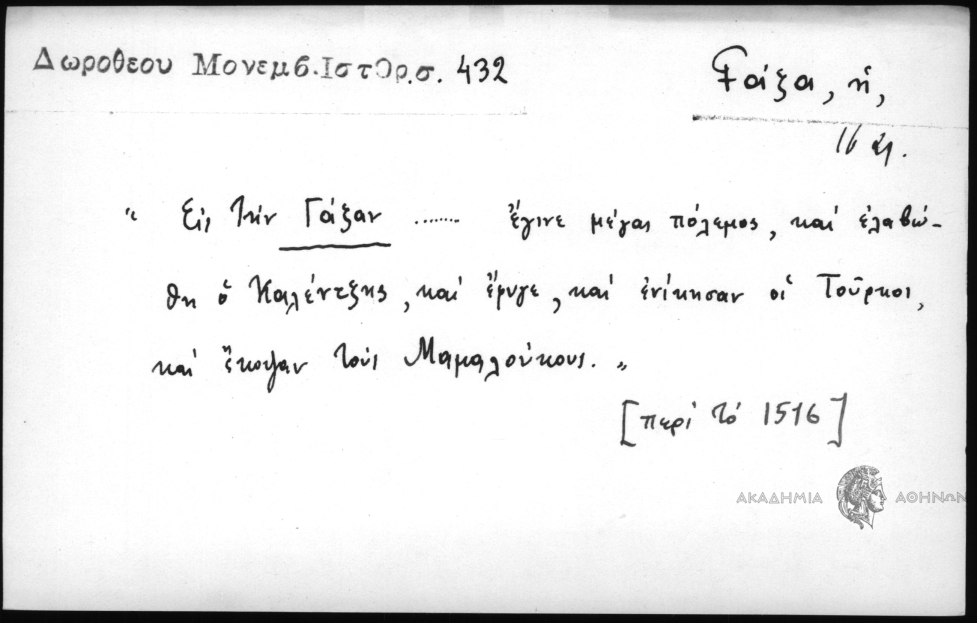 Δωροθεου Μονεμβ. Ιστορ. σ. 432
Γάζα, ἡ,
16 αἰ.
“ Εἰς τὴν Γάζαν ........ ἔγινε μέγας πόλεμος, καὶ ἐλαβώ-
θη ὁ Καλέντζης, καὶ ἔφυγε, καὶ ἐνίκησαν οἱ Τοῦρκοι,
καὶ ἔκοψαν τοὺς Μαμαλούκους. „
[περὶ τὸ 1516]
ΑΚΑΔΗΜΙΑ ΑΘΗΝΩΝ